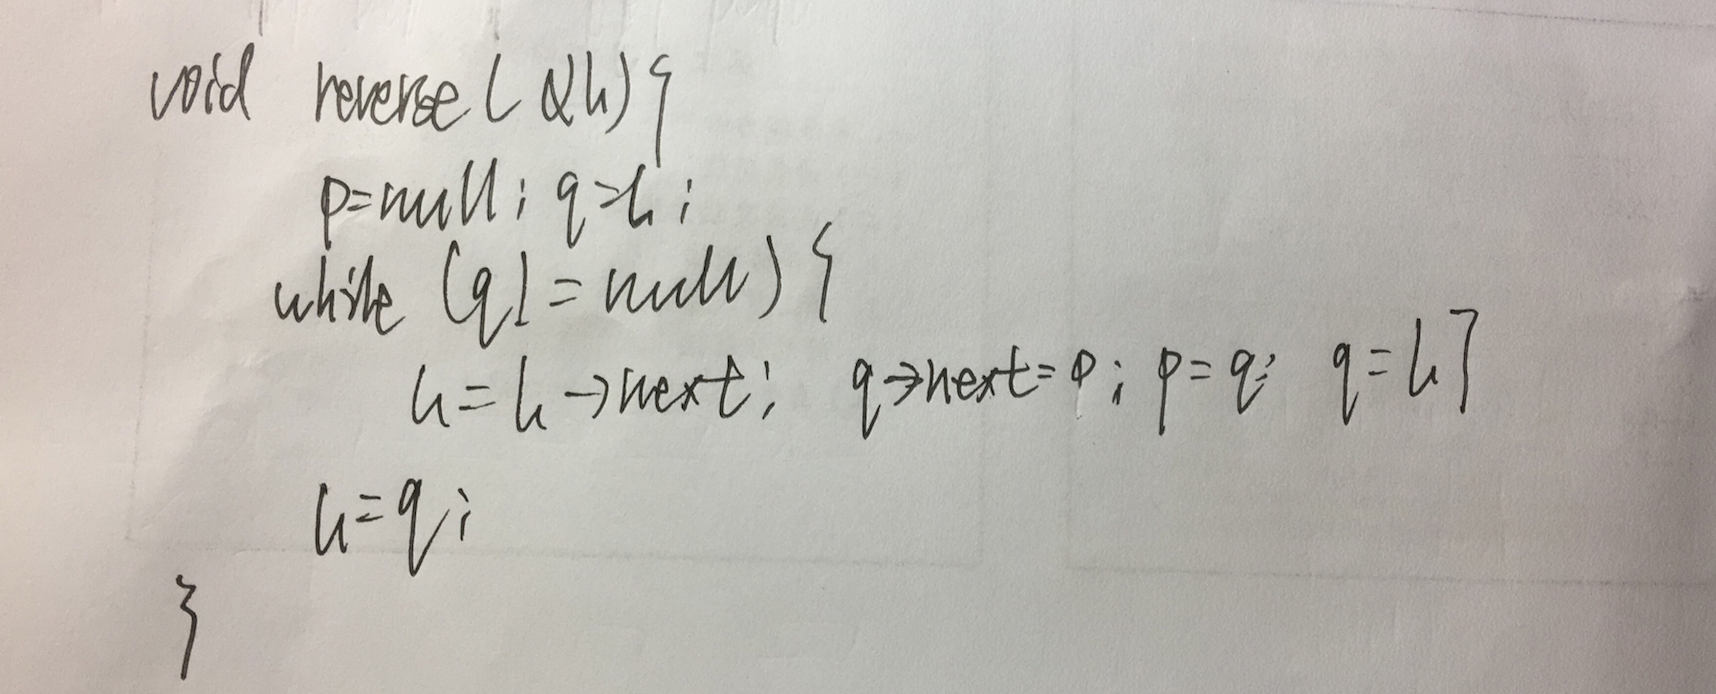 void reverse(&h){
p=null; q=h;
while (q!=null){
h=h->next; q->next=p; p=q; q=h}
h=q;
}